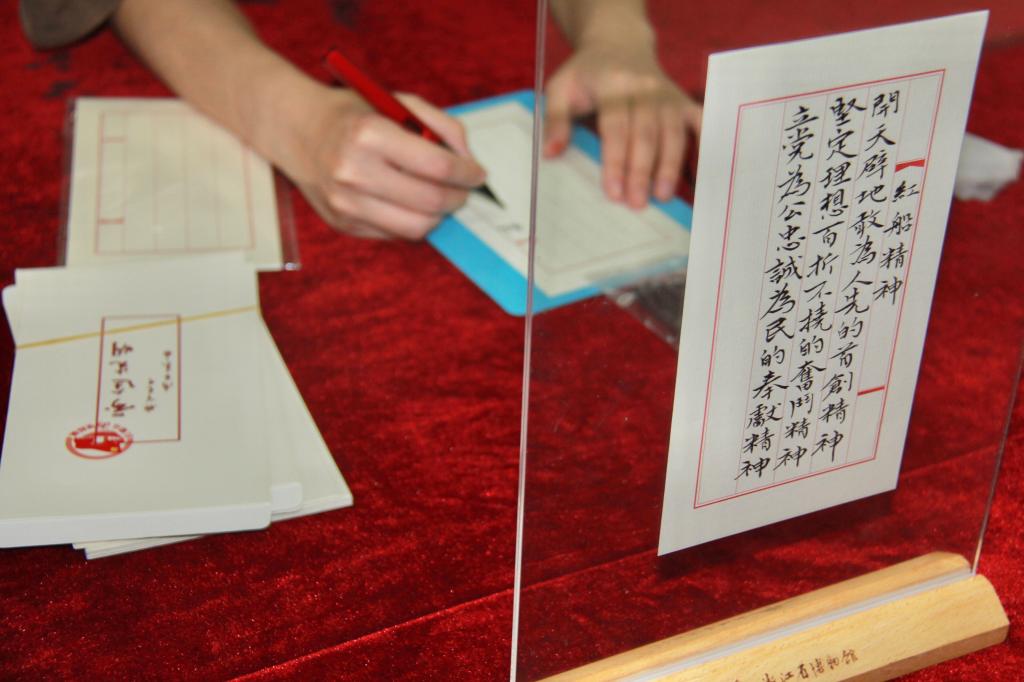 紅船精神
開天辟地敢為人先的首創精神
堅定理想百折不撓的奮鬥精神
立党為公忠誠為民的奉獻精神
江省博物館